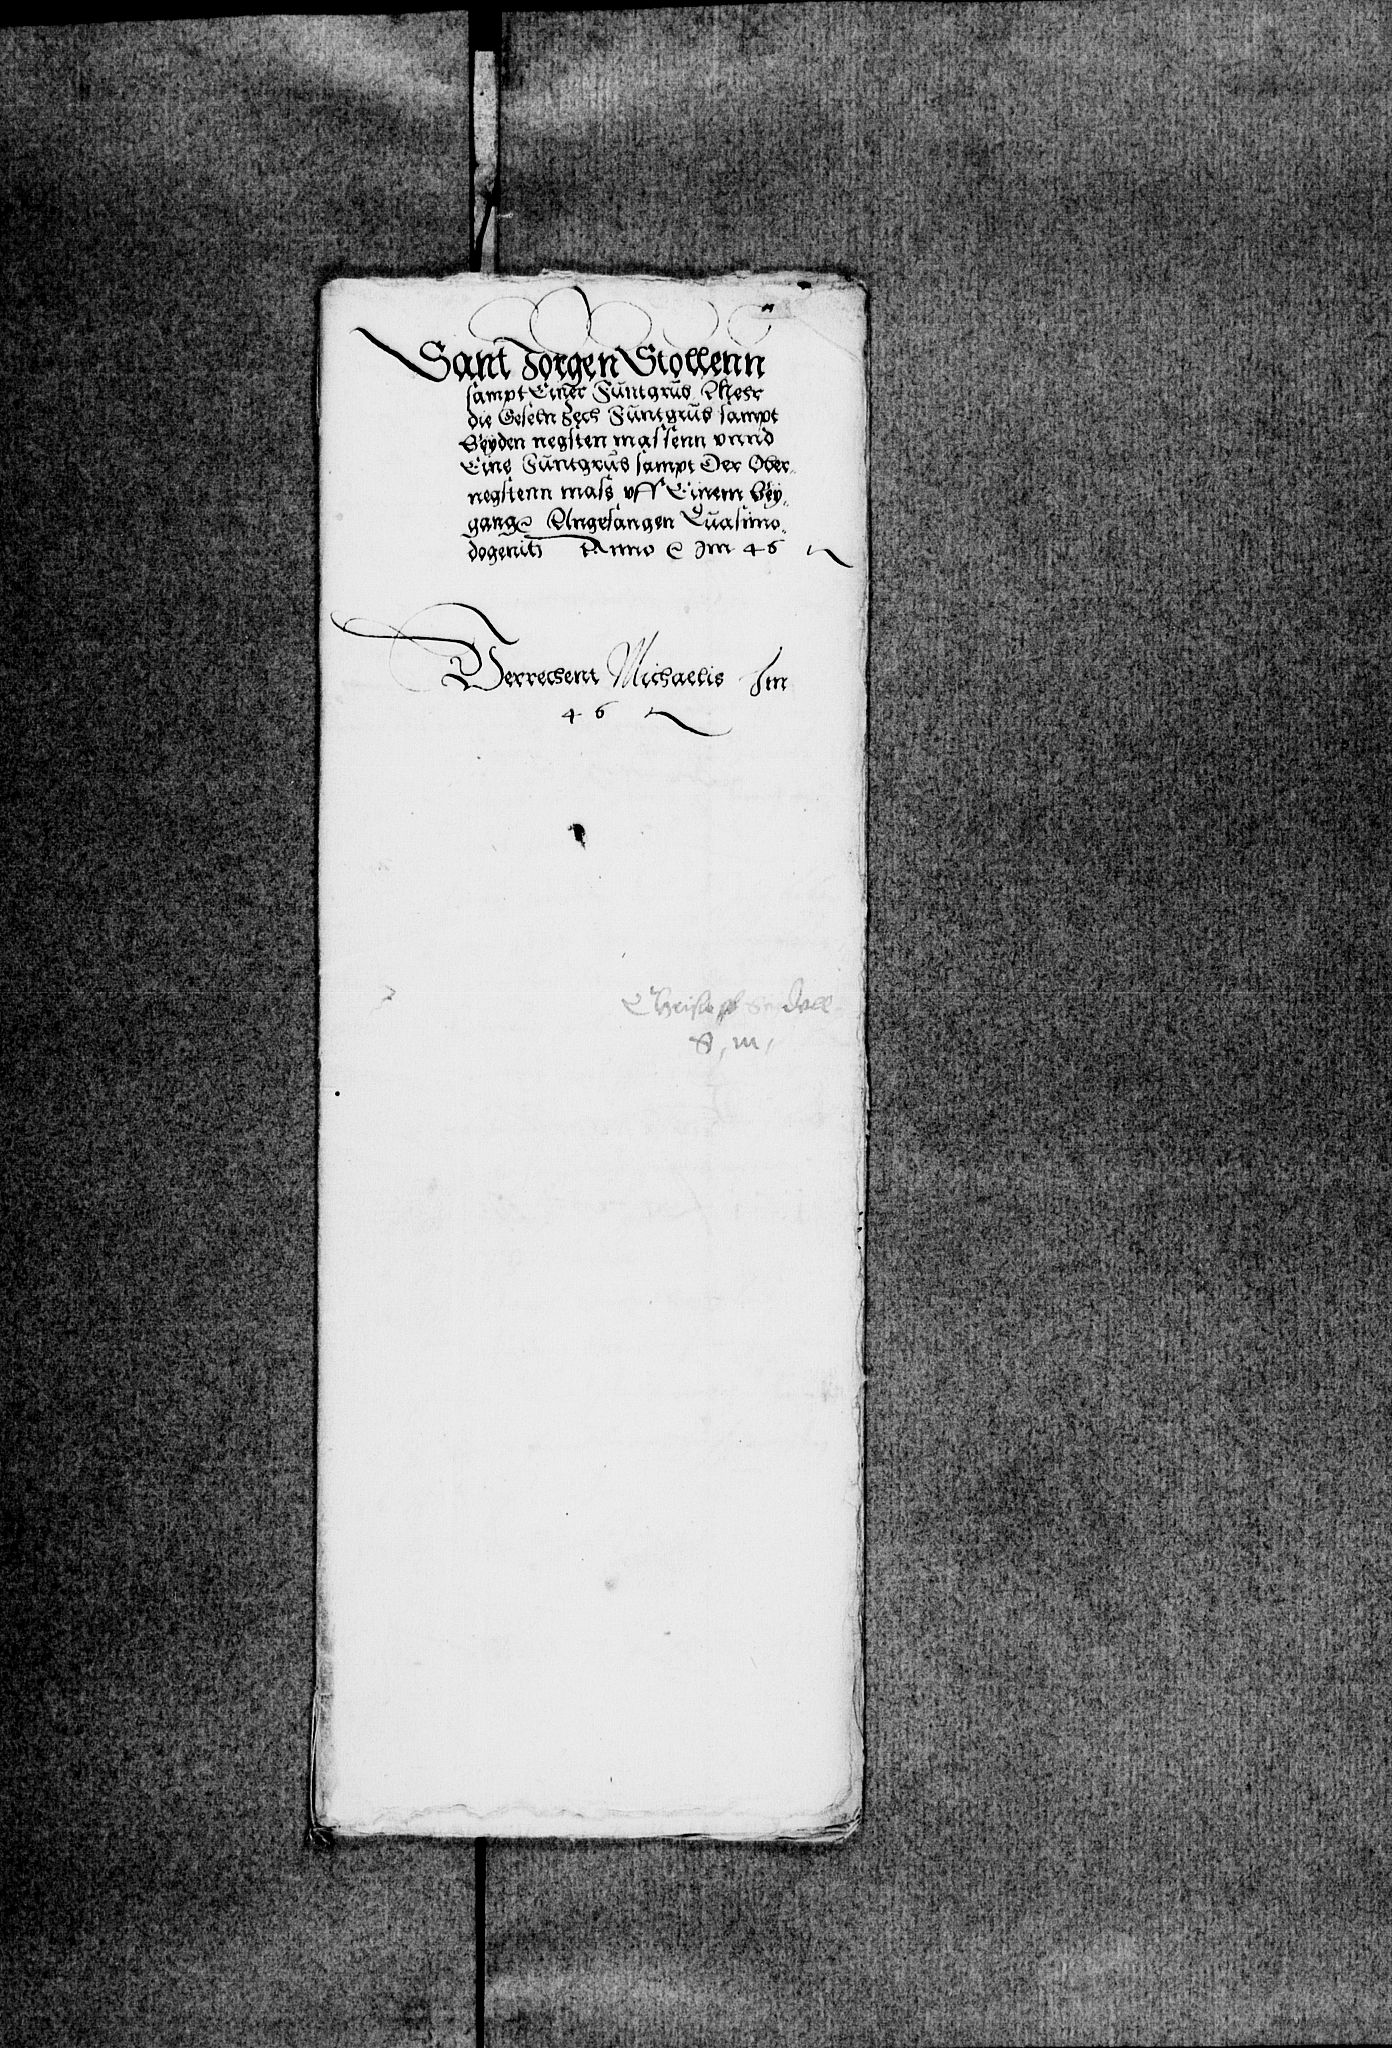 Sant Jorgen Stollenn
sampt Einer Funtgrub Mehr
die Geseln Zech Funtgrub sampt
Beyden negsten massenn vnnd
Eine Funtgrub sampt Der Ober
negstenn mass vff Einem bey
gange Angefangen Quasimo
dogeniti Anno &c Im 46
Verrechent Michaelis Im
46
Christoph
S, m,